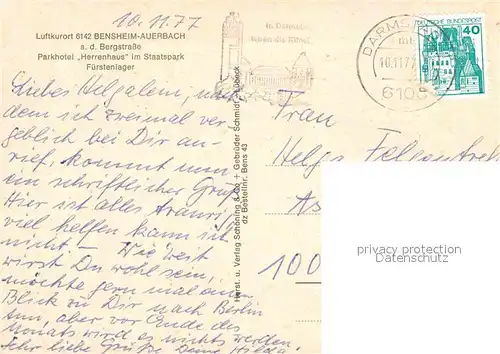 10.11.77
Luftkurort 6142 BENSHEIM-AUERBACH
a. d. Bergstraße
Parkhotel „Herrenhaus" im Staatspark
Fürstenlager
Liebes Helgalein, nach
dem ich zweimal ver
geblich bei Dir an-
rief, kommt nun
ein schriftlicher Gruß
Hier ist alles trauri
viel helfen kann ich
nicht – Wie weit
wirst Du wohl sein,
möchte gern mal einen
Blick zu Dir nach Berlin
tun, aber vor Ende des
Monats wird es nichts werden.
Sehr liebe Grüße Deine Hilda
Herst. u. Verlag Schöning & Co + Gebrüder Schmidt, Lübeck
dz Bestellnr. Bens 43
in Darmstadt
leben die Künste
DARMS
10.11.77
610
DEUTSCHE BUNDESPOST
40
Frau
Helga
As
100
privacy protection
Datenschutz